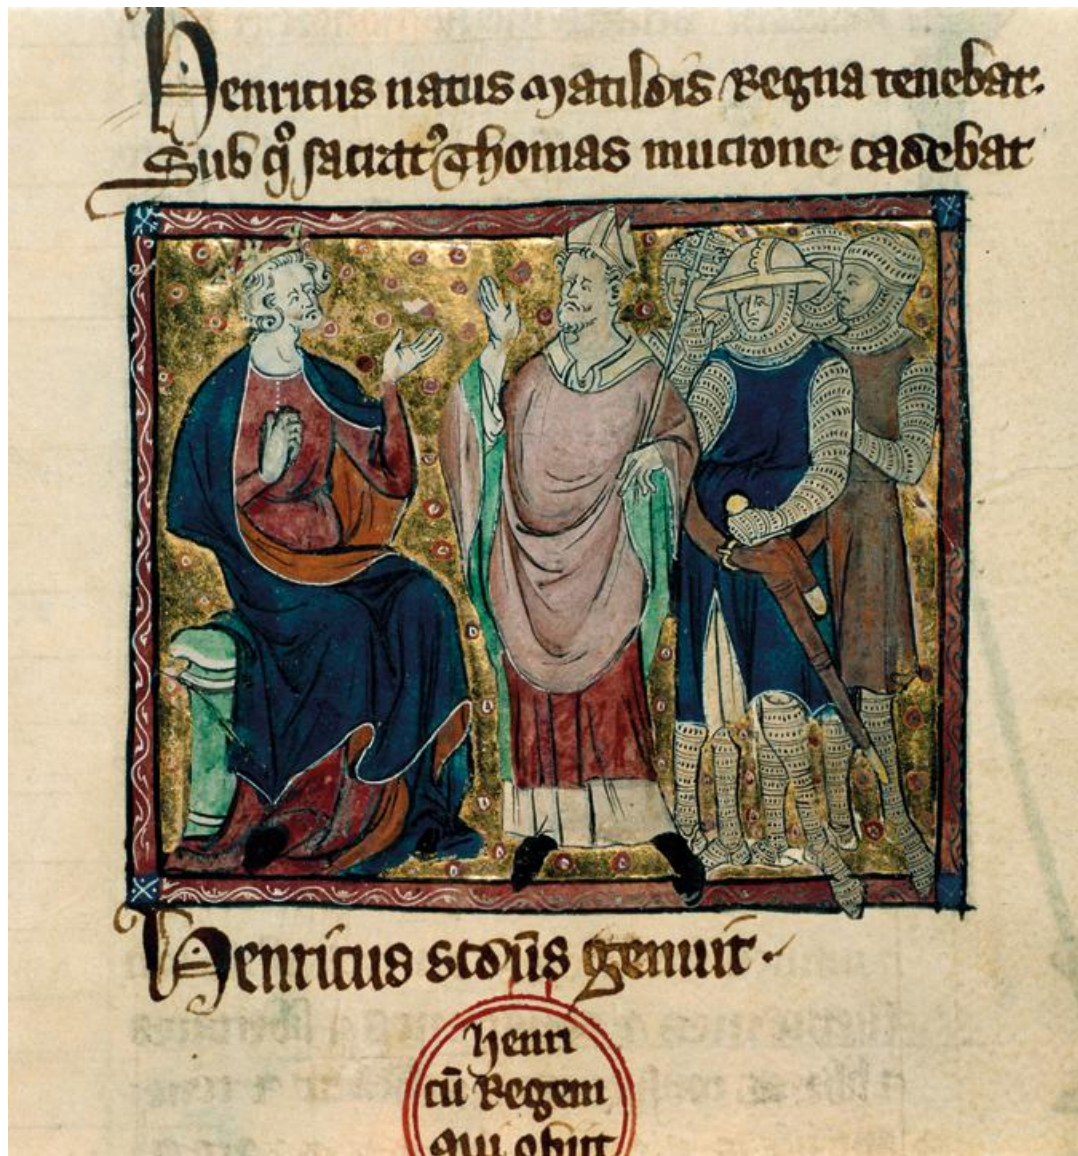 Henricus natus Matildis Regna tenebat.
Sub qo sacrat' Thomas mucrone cadebat
Henricus scdus genuit.
henri
cū Regem
qui obiit